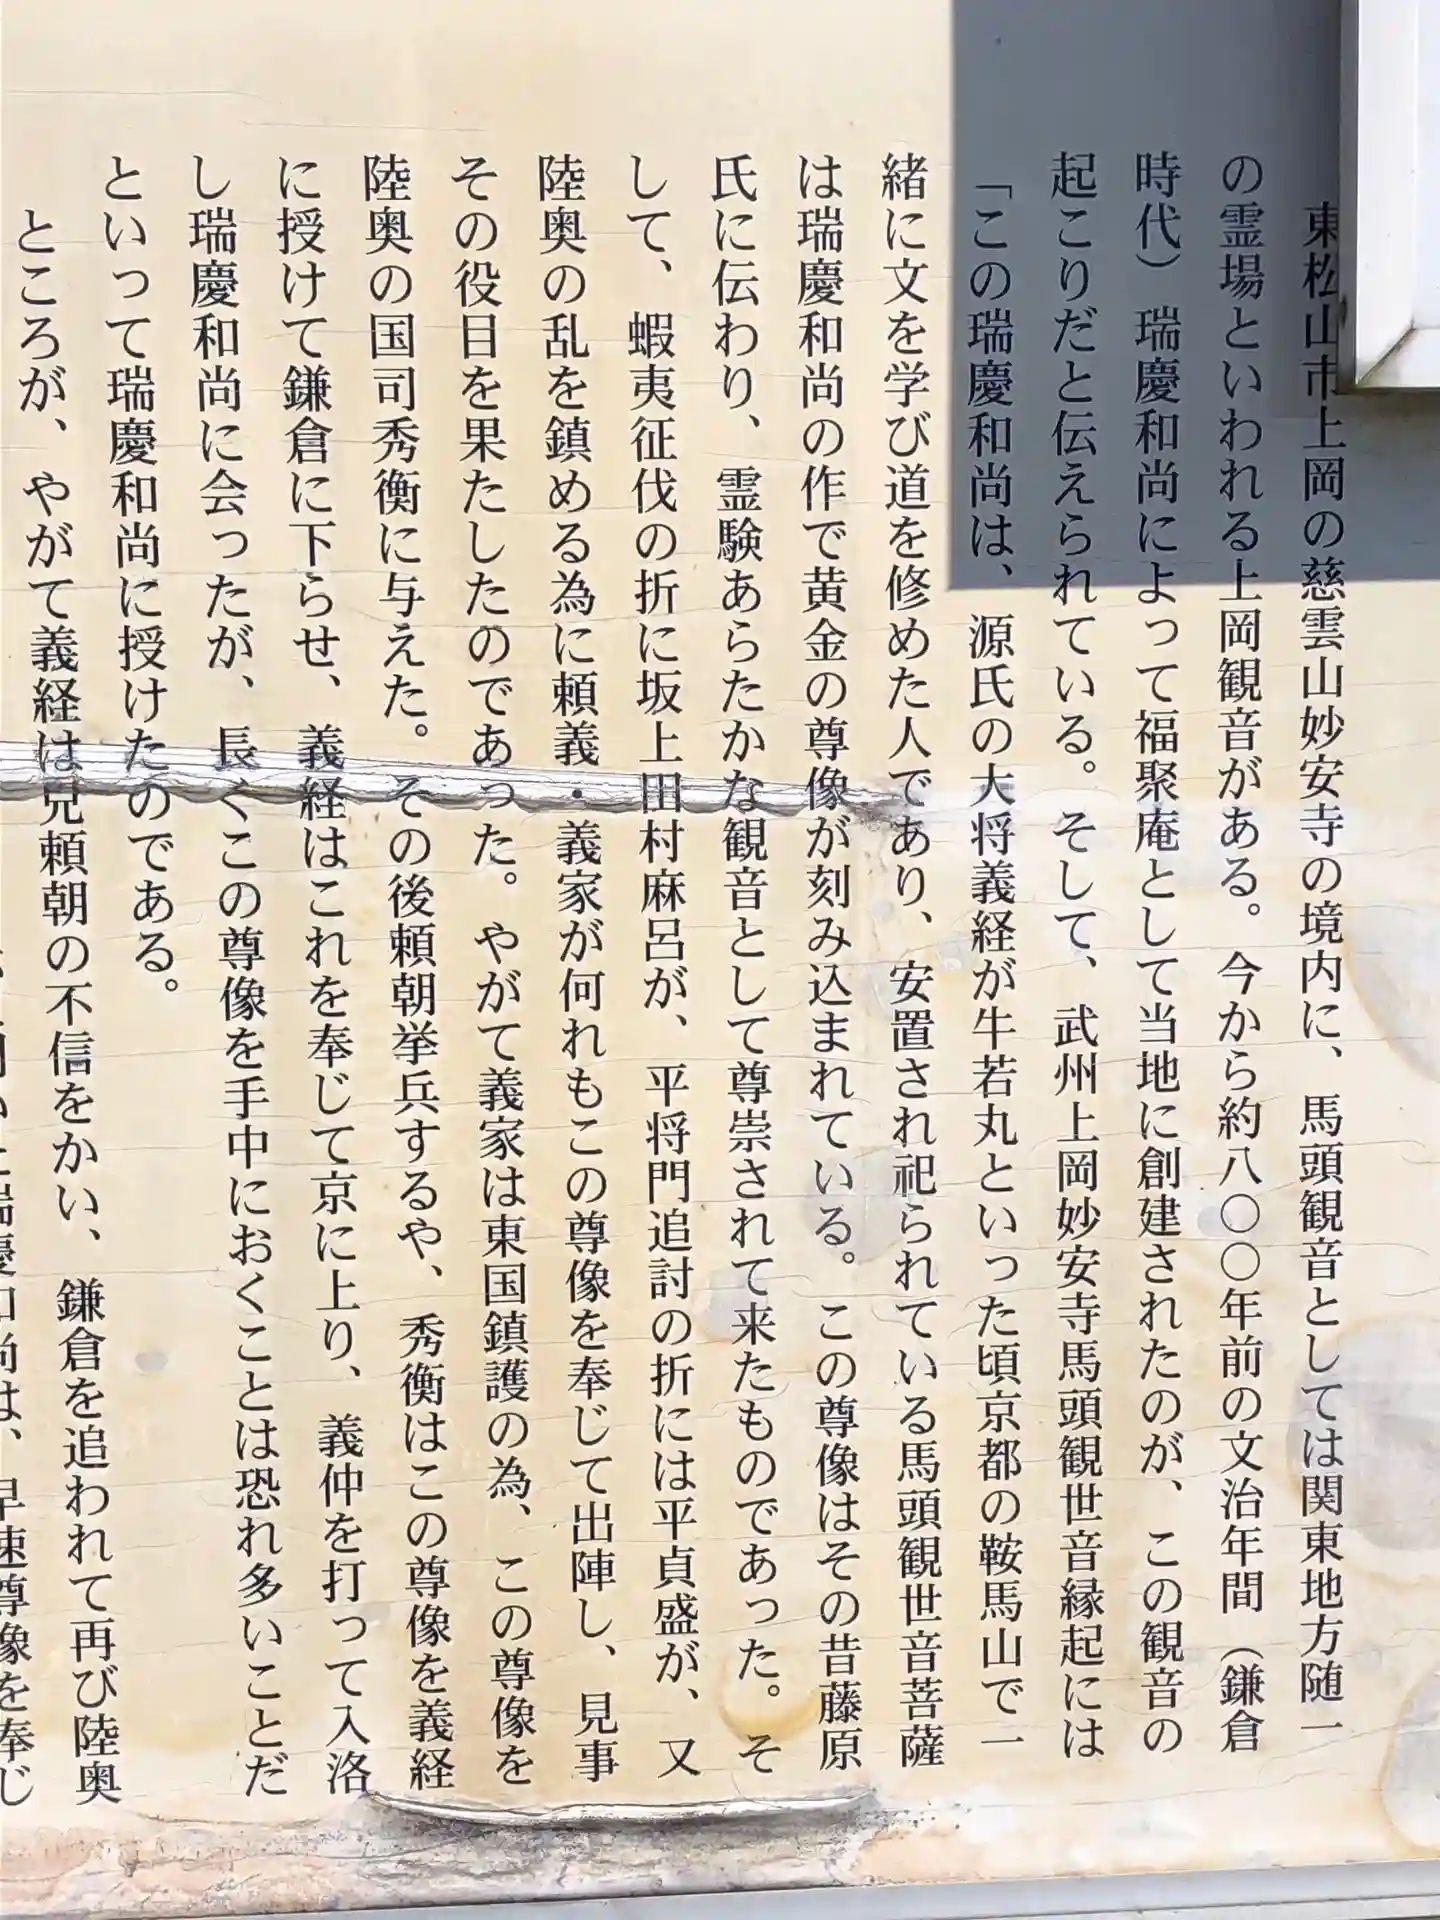 東松山市上岡の慈雲山妙安寺の境内に、馬頭観音としては関東地方随一
の霊場といわれる上岡観音がある。今から約八〇〇年前の文治年間（鎌倉
時代）瑞慶和尚によって福聚庵として当地に創建されたのが、この観音の
起こりだと伝えられている。そして、武州上岡妙安寺馬頭観世音縁起には
「この瑞慶和尚は、源氏の大将義経が牛若丸といった頃京都の鞍馬山で一
緒に文を学び道を修めた人であり、安置され祀られている馬頭観世音菩薩
は瑞慶和尚の作で黄金の尊像が刻み込まれている。この尊像はその昔藤原
氏に伝わり、霊験あらたかな観音として尊崇されて来たものであった。そ
して、蝦夷征伐の折に坂上田村麻呂が、平将門追討の折には平貞盛が、又
陸奥の乱を鎮める為に頼義・義家が何れもこの尊像を奉じて出陣し、見事
その役目を果たしたのであった。やがて義家は東国鎮護の為、この尊像を
陸奥の国司秀衡に与えた。その後頼朝挙兵するや、秀衡はこの尊像を義経
に授けて鎌倉に下らせ、義経はこれを奉じて京に上り、義仲を打って入洛
し瑞慶和尚に会ったが、長くこの尊像を手中におくことは恐れ多いことだ
といって瑞慶和尚に授けたのである。
ところが、やがて義経は兄頼朝の不信をかい、鎌倉を追われて再び陸奥
瑞慶和尚は、早速尊像を奉じ